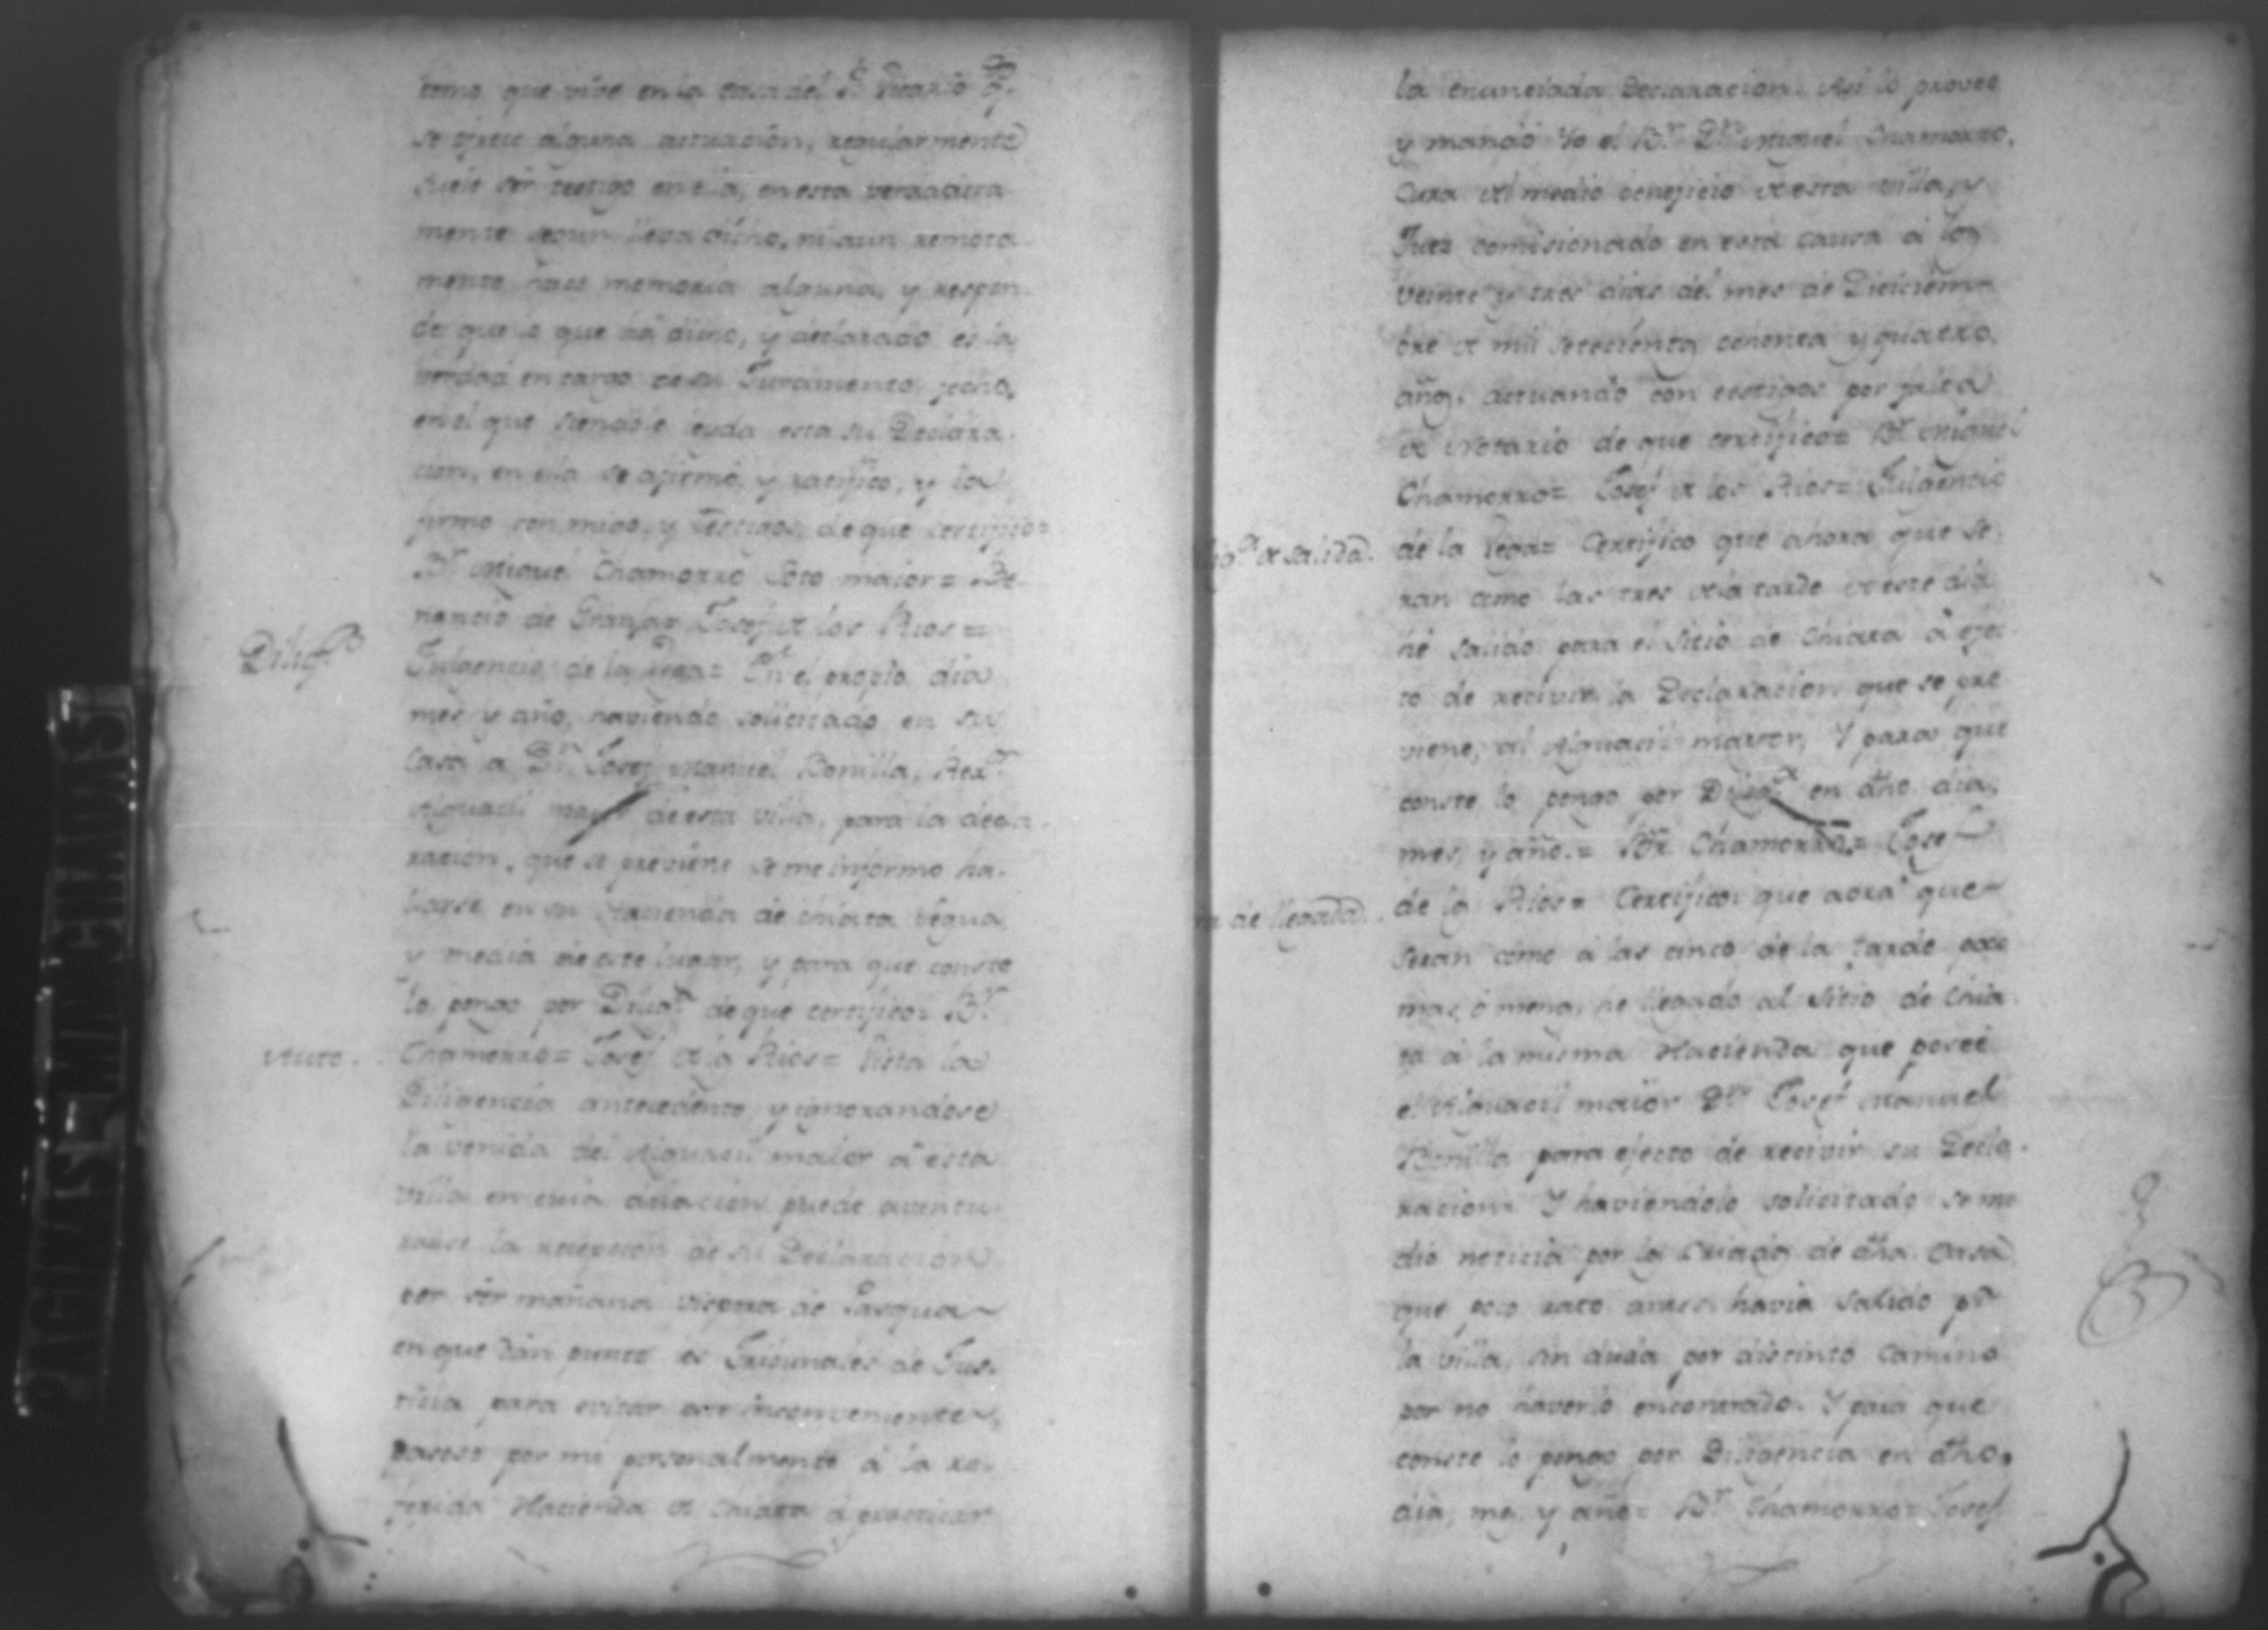 como que vive en la casa del S.r Vicario q.e
se ofrece alguna actuacion, regularmente
suele ser testigo en ella, en esta verdadera
mente segun lleva dicho, ni aun remota
mente hace memoria alguna, y respon
de que lo que ha dicho, y declarado es la
verdad en cargo de su Juramento fecho,
en el que siendole leyda esta su Declara
cion, en ella se afirmó, y ratificó, y la
firmó conmigo, y testigos, de que certifico=
B.r Miguel Chamorro Soto maior= Be
nancio de Granja= Josef de los Rios=
Dilig.a
Fulgencio de la Vega= En el propio dia
mes y año, haviendo solicitado en su
casa a D.n Josef Manuel Bonilla, Rex.r
Alguacil mayor de esta villa, para la decla
racion, que se previene se me informó ha
llarse en su Hacienda de Chiara legua
y media de este lugar, y para que conste
lo pongo por Dilig.a de que certifico= B.r
Auto.
Chamorro= Josef de los Rios= Vista la
Diligencia antecedente, y ignorandose
la venida del Alguacil maior á esta
villa en cuia dilacion puede aventu
rarse la recepcion de su Declaracion
por ser mañana vispera de Pasqua
en que dan punto los Tribunales de Jus
ticia para evitar este inconveniente,
pasese por mi personalmente á la re
ferida Hacienda de Chiara á practicar
la enunciada Declaracion. Asi lo provee
y mandó Yo el B.r D.n Miguel Chamorro,
Cura del medio beneficio de esta villa, y
Juez comisionado en esta causa á los
veinte y tres dias del mes de Diciem
bre de mil setecientos ochenta y quatro
años, actuando con testigos por falta
de Notario de que certifico= B.r Miguel
Chamorro= Josef de los Rios= Fulgencio
de salida.
de la Vega= Certifico que ahora que se
ran como las tres de la tarde de este dia
hé salido para el sitio de Chiara á efec
to de recivir la Declaracion que se pre
viene, al Alguacil mayor, Y para que
conste lo pongo por Dilig.a en dho. dia,
mes, y año.= Br. Chamorro.= Josef
de llegada.
de los Rios= Certifico: que aora que
seran como á las cinco de la tarde poco
mas, ó menos, he llegado al Sitio de Chia
ra á la misma Hacienda que poseé
el Alguacil maior D.n Josef Manuel
Bonilla para efecto de recivir su Decla
racion= Y haviendolo solicitado se me
dió noticia por los Criados de dha. Casa
que poco rato antes havia salido p.a
la villa, sin duda por distinto camino
por no haverlo encontrado. Y para que
conste lo pongo por Diligencia en dho.
dia, mes, y año= B.r Chamorro= Josef